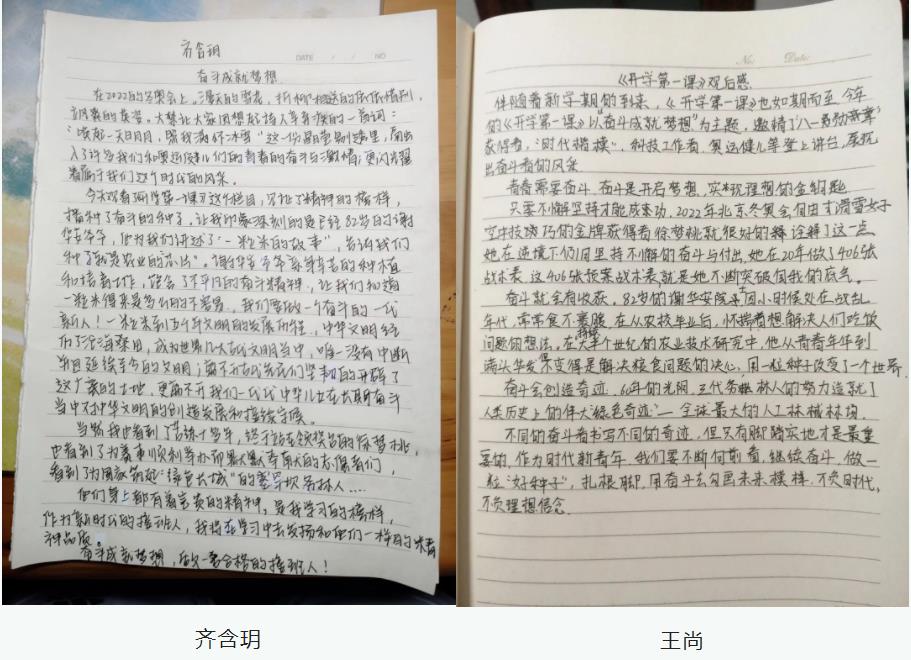 齐含玥
DATE / / NO
奋斗成就梦想
在2022的冬奥会上。漫天的雪花，折柳相送的依依惜别，
入了许多我们和奥运健儿们的青春的奋斗与激情，更闪光耀
着属于我们这个时代的风采。
今天观看开学第一课这个栏目，
播种了奋斗的种子。让我印象深刻的是已经82岁的谢
华安爷爷，他为我们讲述了“一粒米的故事”，告诉我们
种子就是农业的“芯片”。谢华安爷爷亲身辛苦的种植
和培育工作，饱含了不平凡的奋斗精神，让我们知道
一粒米得来是多么的不容易，我们要做一个奋斗的一代
新人！一粒米到五千年文明的发展历程，中华文明经
历了沧海桑田，成为世界几大古代文明当中，唯一没有中断
并且延续至今的文明，离不开古代先民们坚韧的开辟了
这广袤的土地，更离不开我们一代代中华儿女在长期奋斗
当中对中华文明的创造发展和接续守候。
当然我也看到了苦练十多年，终于站在领奖台的徐梦桃，
也看到了为赛事顺利举办而默默奉献的志愿者们，
看到了为国家筑起“绿色长城”的塞罕坝务林人....
他们身上都有着宝贵的精神，是我学习的榜样，
作为新时代的接班人，我将在学习中去发扬和他们一样的
神品质。
奋斗成就梦想，做一名合格的接班人！
No. Date.
《开学第一课》观后感
伴随着新学期的到来，《开学第一课》也如期而至 今年
的《开学第一课》以“奋斗成就梦想”为主题，邀请了“八一勋章”
获得者，“时代楷模”，科技工作者 奥运健儿等登上讲台，展现
出奋斗者的风采
青春需要奋斗，奋斗是开启梦想，实现理想的金钥匙
只要不懈坚持才能成功，2022年北京冬奥会自由式滑雪女子
空中技巧的金牌获得者徐梦桃就很好的诠释了这一点
她在逆境下仍旧坚持不懈的奋斗与付出，她在20年做了406张
战术表 这406张预案战术表就是她不断突破自我的底气。
奋斗就会有收获，82岁的谢华安院士因小时候处在战乱
年代，常常食不裹腹 在从农校毕业后，怀揣着想解决人们吃饭
问题的想法，在持续大半个世纪的农业技术研究中，他从青春年华到
满头华发不变得是解决粮食问题的决心，用一粒种子改变了一个世界
奋斗会创造奇迹，60年的光阴，三代务林人的努力造就了
人类历史上的伟大“绿色奇迹”— 全球最大的人工林械林场
不同的奋斗者书写不同的奇迹，但只有脚踏实地才是最重
要的，作为时代新青年，我们要不断向前看，继续奋斗，做一
粒“好种子”，扎根脚，用奋斗去勾画未来模样，不负时代，
不负理想信念
齐含玥
王尚